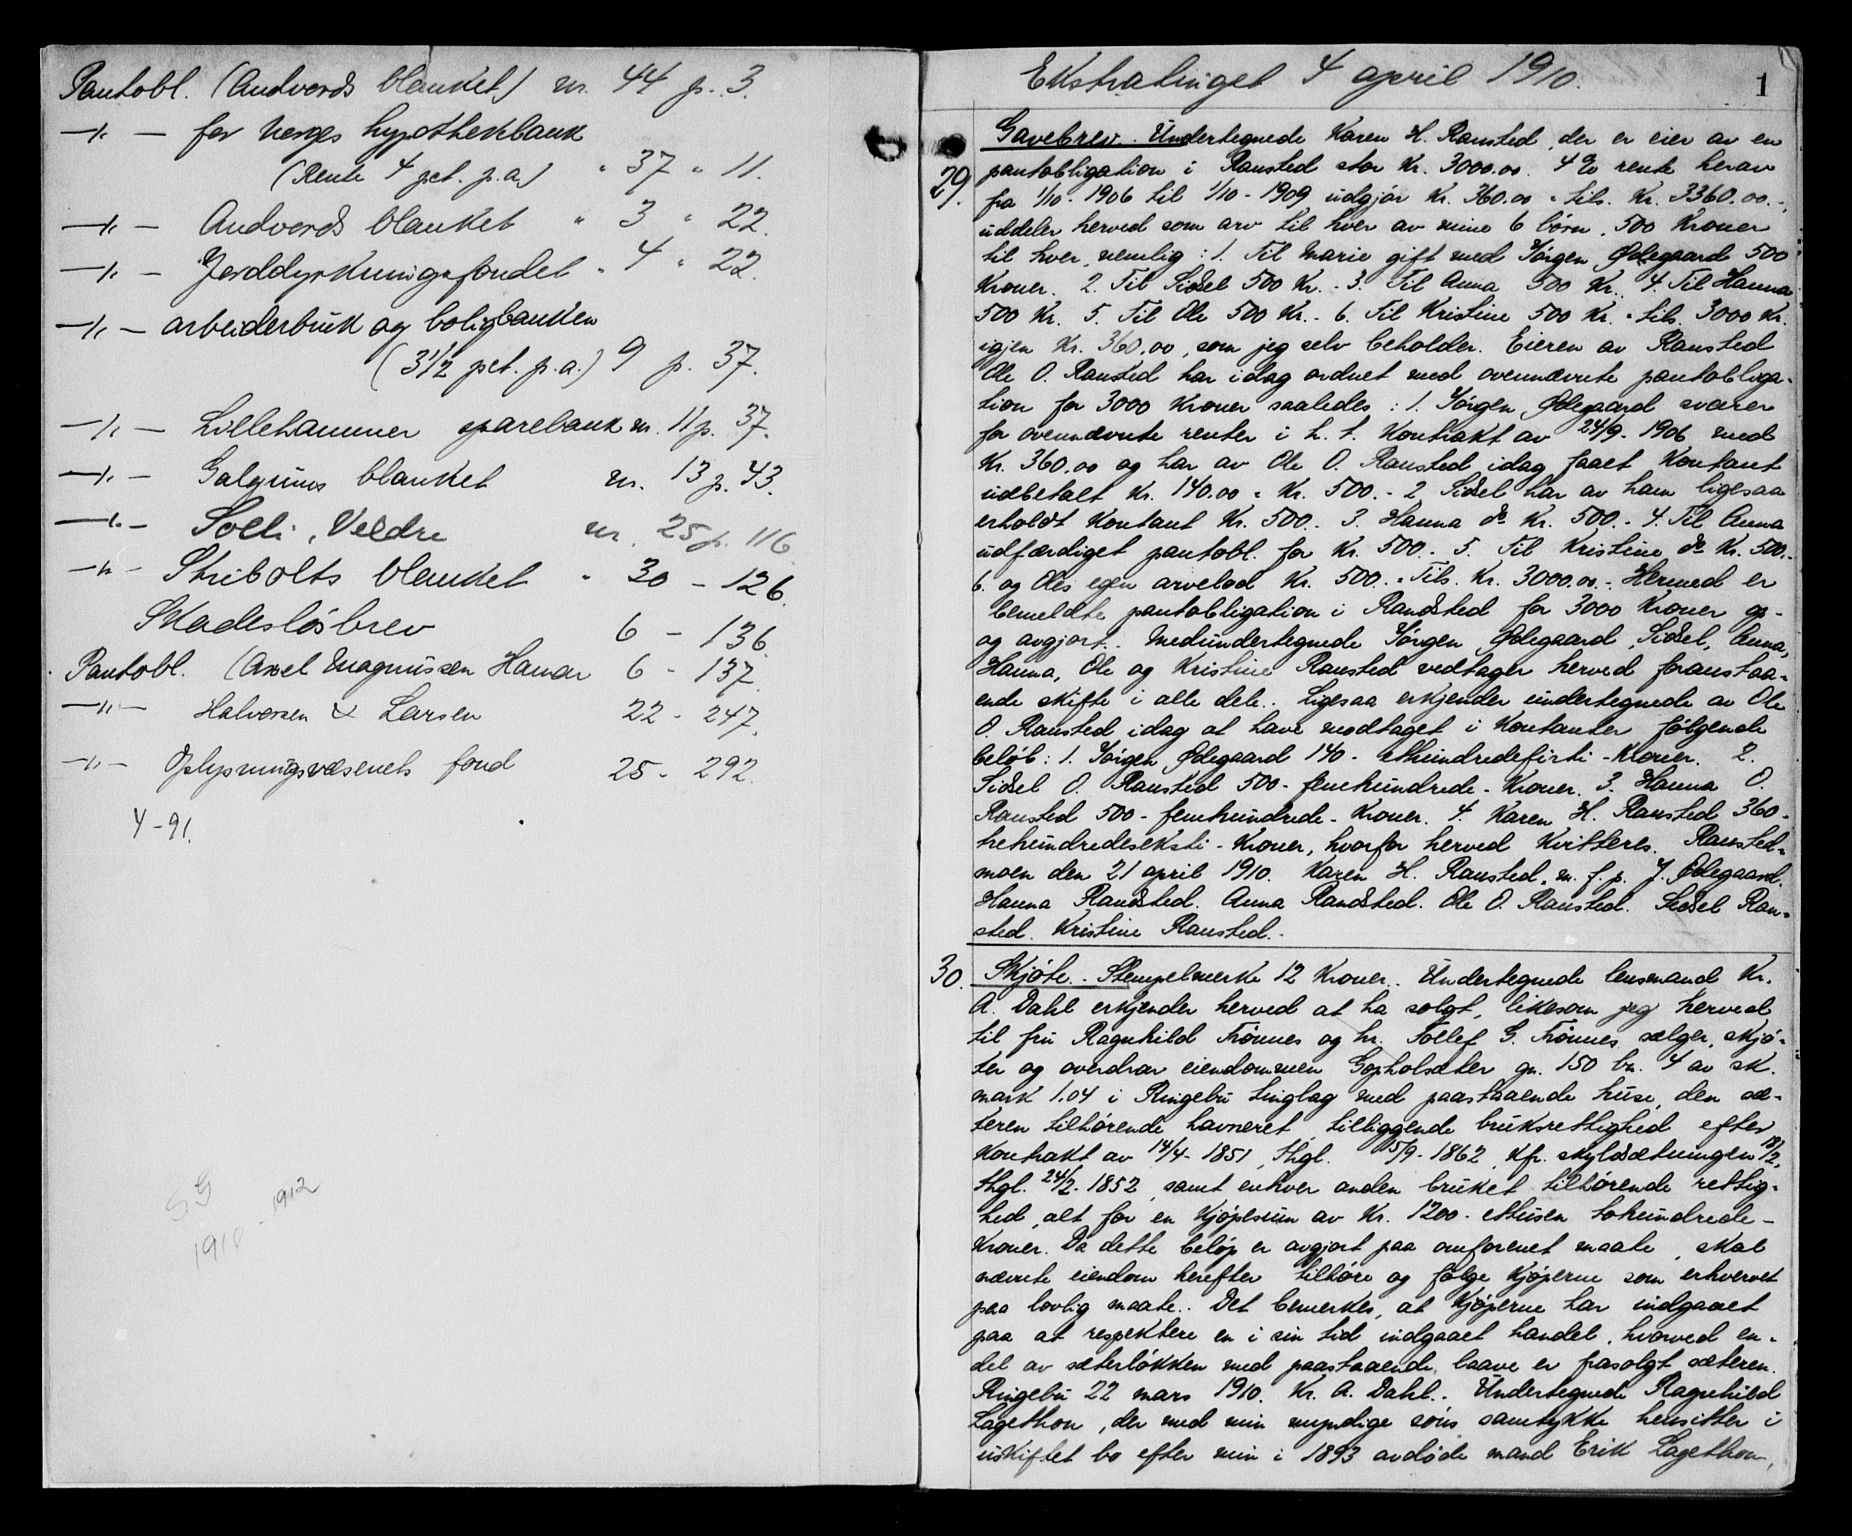 Pantobl. (Andvords blanket) nr. 44 p. 3.
—"— for Norges hypothekbank
(Rente 4 pct. p.a.) " 37 " 11.
—"— Andvords blanket " 3 " 22.
—"— Jorddyrkningsfondet " 4 " 22.
—"— arbeiderbruk og boligbanken
(3 1/2 pct. p.a.) 9 p. 37.
—"— Lillehammer sparebank nr. 11 p. 37.
—"— Galgums blanket nr. 13 p. 43.
—"— Solli, Veldre nr. 25 p. 116
—"— Stribolts blanket " 30 - 126.
Skadesløsbrev 6 - 136.
Pantobl. (Axel Magnussen Hamar 6 - 137.
—"— Halvorsen & Larsen 22 - 247.
—"— Oplysningsvæsenets fond 25 - 292.
4-91.
SG
1910 - 1912
Ekstratinget 4 april 1910.
1
29. Gavebrev. Undertegnede Karen H. Ransted, der er eier av en
pantobligation i Ransted stor Kr. 3000.00. 4% rente herav
fra 1/10-1906 til 1/10-1909 udgjør Kr. 360.00 = tils. Kr. 3360.00.-,
uddeler herved som arv til hver av mine 6 børn, 500 Kroner
til hver, nemlig: 1. Til Marie gift med Jørgen Ødegaard 500
Kroner. 2. Til Sidsel 500 Kr. - 3. Til Anna 500 Kr. 4. Til Hanna
500 Kr. 5. Til Ole 500 Kr. - 6. Til Kristine 500 Kr. = tils. 3000 Kr.
igjen Kr. 360.00, som jeg selv beholder. Eieren av Ransted
Ole O. Ransted har idag ordnet med ovennævnte pantobliga-
tion for 3000 Kroner saaledes: 1. Jørgen Ødegaard svarer
for ovennævnte renter i h. t. Kontrakt av 24/9-1906 med
Kr. 360.00 og har av Ole O. Ransted idag faaet Kontant
udbetalt Kr. 140.00 = Kr. 500.- 2. Sidsel har av ham ligesaa
erholdt Kontant Kr. 500.- 3. Hanna do Kr. 500.- 4. Til Anna
udfærdiget pantobl. for Kr. 500.- 5. Til Kristine do Kr. 500.-
6. og Oles egen arvelod Kr. 500. = Tils. Kr. 3000.00.- Hermed er
bemeldte pantobligation i Randsted for 3000 Kroner op-
og avgjort.- Medundertegnede Jørgen Ødegaard, Sidsel, Anna,
Hanna, Ole og Kristine Ransted vedtager herved foranstaa-
ende skifte i alle dele.- Ligesaa erkjender undertegnede av Ole
O. Ransted idag at have modtaget i Kontanter følgende
beløb: 1. Jørgen Ødegaard 140 - ethundredefirti - Kroner. 2.
Sidsel O. Ransted 500 - femhundrede - Kroner. 3. Hanna O.
Ransted 500 - femhundrede - Kroner. 4. Karen H. Ransted 360 -
trehundredeseksti - Kroner, hvorfor herved kvitteres. Ransted-
moen den 21 april 1910. Karen H. Ransted. m. f. p. J. Ødegaard.
Hanna Randsted. Anna Randsted. Ole O. Ransted. Sidsel Ran-
sted. Kristine Ransted.-
30. Skjøte.- Stempelmerke 12 Kroner.. Undertegnede lensmand Kr.
A. Dahl erkjender herved at ha solgt, likesom jeg herved
til fru Ragnhild Trønnes og hr. Tollef G. Trønnes sælger, skjø-
ter og overdrar eiendommen Gopholsæter gn. 150 bn. 4 av sk.
mark 1.04 i Ringebu tinglag med paastaaende huse, den sæ-
teren tilhørende havneret, tilliggende bruksrettighed efter
Kontrakt av 14/4-1851, thgl. 15/9-1862, kfr. skyldsætningen 18/2,
thgl. 24/2-1852, samt enhver anden bruket tilhørende rettig-
hed, alt for en Kjøpesum av Kr. 1200 - ettusen tohundrede -
Kroner. Da dette beløp er avgjort paa omforenet maate, skal
nævnte eiendom herefter tilhøre og følge Kjøperne som erhvervet
paa lovlig maate.. Det bemerkes, at Kjøperne har indgaaet
paa at respektere en i sin tid indgaaet handel, hvorved en-
del av sæterløkken med paastaaende laave er frasolgt sæteren.
Ringebu 22 mars 1910. Kr. A. Dahl.- Undertegnede Ragnhild
Lagethon, der med min myndige søns samtykke hensitter i
uskiftet bo efter min i 1893 avdøde mand Erik Lagethon,